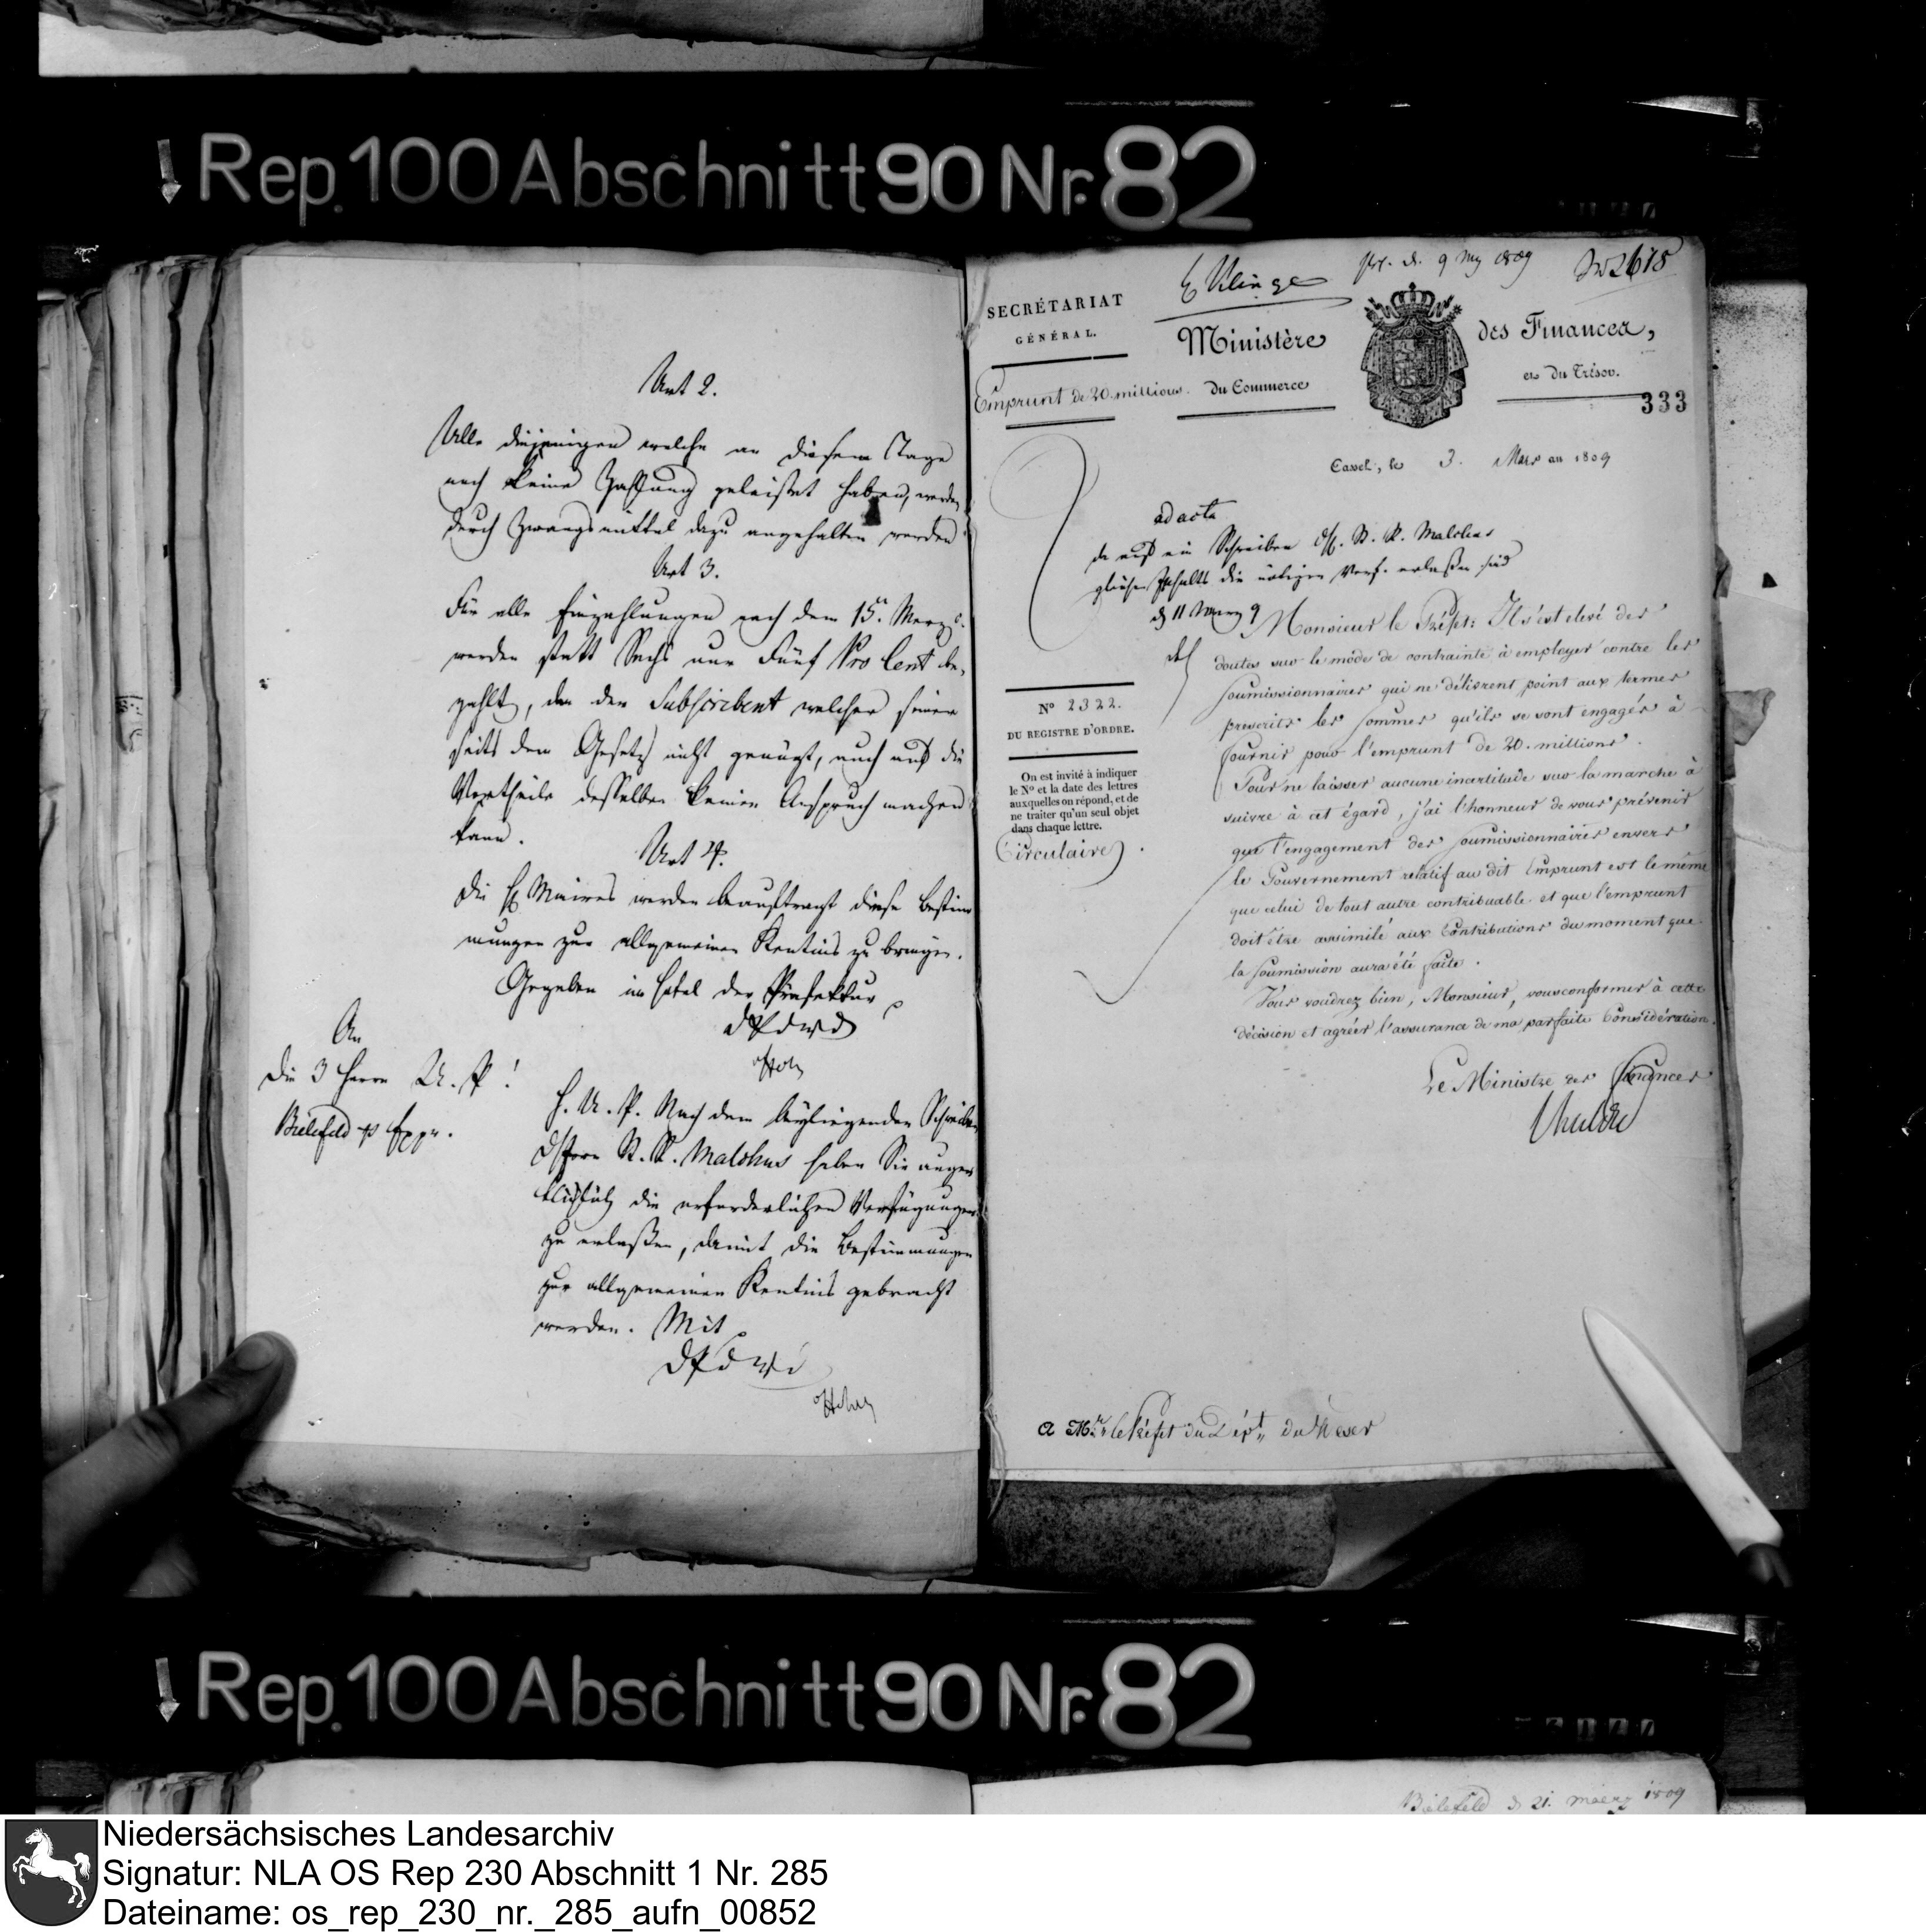 Rep. 100 Abschnitt 90 Nr. 82
Art 2.
Alle diejenigen welche an diesem Tage
noch keine Zahlung geleistet haben, werden
durch Zwangsmittel dazu angehalten werden
Art 3.
Für alle Einzahlungen nach dem 15n. Merz
werden statt Sechs nur Fünf Pro Cent be-
zahlt, da der Subscribent welcher seiner
seits dem Gesetz nicht genügt, auch auf die
Vortheile desselben keinen Anspruch machen
kann.
Art 4.
Die H Maires werden beauftragt diese Bestim
mungen zur allgemeinen Kentnis zu bringen.
Gegeben im Hotel der Präfektur
DPdWD
An
die 3 Herrn U. P!
Bielefeld
H. U. P. Nach dem beyliegenden Schreiben
Herrn St. R. Malchus haben Sie augen
blicklich die erforderlichen Verfügungen
zu erlaßen, damit die Bestimmungen
zur allgemeinen Kentnis gebracht
werden. Mit
DPdWD
Klinge
9 Mz 1809
2618
SECRÉTARIAT
GÉNÉRAL.
Emprunt de 20. millions.
Ministère des Finances,
du Commerce et du Trésor.
333
Cassel, le 3. Mars an 1809
ad acta
da auf ein Schreiben St. R. Malchus
gleichen Inhalts die nötigen Verf. erlaßen sind
11 Merz 9
Monsieur le Préfet: Il s'est elevé des
doutes sur le mode de contrainte à employer contre les
soumissionnaires qui ne délivrent point aux termes
prescrits les sommes qu'ils se sont engagés à
fournir pour l'emprunt de 20. millions.
Pour ne laisser aucune incertitude sur la marche à
suivre à cet égard, j'ai l'honneur de vous prévenir
que l'engagement des soumissionnaires envers
le Gouvernement relatif au dit Emprunt est le même
que celui de tout autre contribuable et que l'emprunt
doit être assimilé aux Contributions du moment que
la soumission aura été faite.
Vous voudrez bien, Monsieur, vous conformer à cette
décision et agréer l'assurance de ma parfaite Considération.
Le Ministre des finances
No 2322.
DU REGISTRE D'ORDRE.
On est invité à indiquer
le No et la date des lettres
auxquelles on répond, et de
ne traiter qu'un seul objet
dans chaque lettre.
Circulaire
A Mr. le Préfet du Dépt. du Weser
Rep. 100 Abschnitt 90 Nr. 82
Bielefeld d 21. maerz 1809
Niedersächsisches Landesarchiv
Signatur: NLA OS Rep 230 Abschnitt 1 Nr. 285
Dateiname: os_rep_230_nr._285_aufn_00852